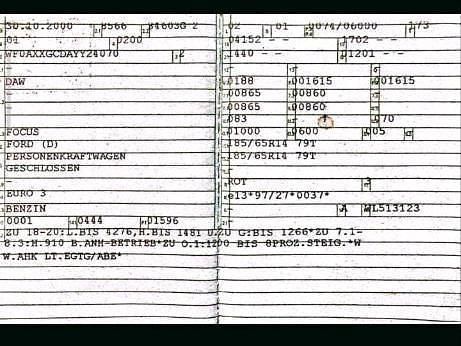 30.10.2000 8566 84603G 2
01 0200
WF0AXXGCDAYY24070 2
DAW
FOCUS
FORD (D)
PERSONENKRAFTWAGEN
GESCHLOSSEN
EURO 3
BENZIN
0001 0444 01596
02 01 0074/06000 173
04152 - - 1702 - -
1440 - - 01201 - -
0188 001615 001615
00865 00860
00865 00860
083 070
01000 0600 005
185/65R14 79T
185/65R14 79T
ROT 3
e13*97/27*0037*
A WL513123
ZU 18-20:L.BIS 4276,H.BIS 1481 U.ZU G:BIS 1266*ZU 7.1-
8.3:H.910 B.ANH-BETRIEB*ZU O.1:1200 BIS 8PROZ.STEIG.*W
W.AHK LT.EGTG/ABE*